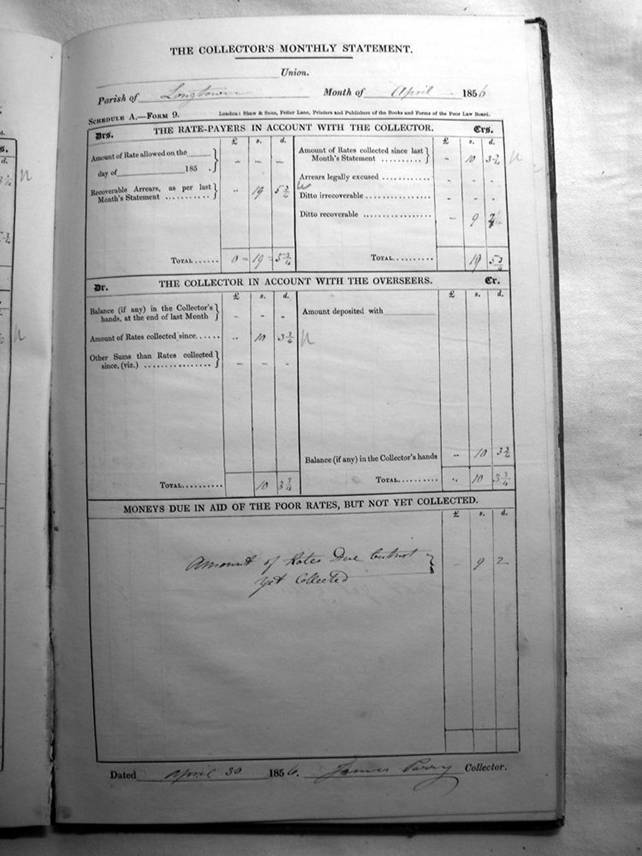 THE COLLECTOR'S MONTHLY STATEMENT.
Union.
Parish of Longtown Month of April 1856
SCHEDULE A.—FORM 9. London: Shaw & Sons, Fetter Lane, Printers and Publishers of the Books and Forms of the Poor Law Board.
Drs. THE RATE-PAYERS IN ACCOUNT WITH THE COLLECTOR. Crs.
£ s. d. £ s. d.
Amount of Rate allowed on the
day of 185 . } - - -
Recoverable Arrears, as per last
Month's Statement ........... } " 19 5 3/4
TOTAL ...... 0 = 19 = 5 3/4
Amount of Rates collected since last
Month's Statement .......... } - 10 3 3/4
Arrears legally excused ............. - - -
Ditto irrecoverable ................. - - -
Ditto recoverable .................. - 9 2
TOTAL .......... 19 5 3/4
Dr. THE COLLECTOR IN ACCOUNT WITH THE OVERSEERS. Cr.
£ s. d. £ s. d.
Balance (if any) in the Collector's
hands, at the end of last Month } - - -
Amount of Rates collected since...... " 10 3 3/4
Other Sums than Rates collected
since, (viz.) ................ } - - -
TOTAL .......... 10 3 3/4
Amount deposited with
Balance (if any) in the Collector's hands " 10 3 3/4
TOTAL .......... " 10 3 3/4
MONEYS DUE IN AID OF THE POOR RATES, BUT NOT YET COLLECTED.
£ s. d.
Amount of Rates Due but not
yet Collected } - 9 2
Dated April 30 1856. James Parry Collector.